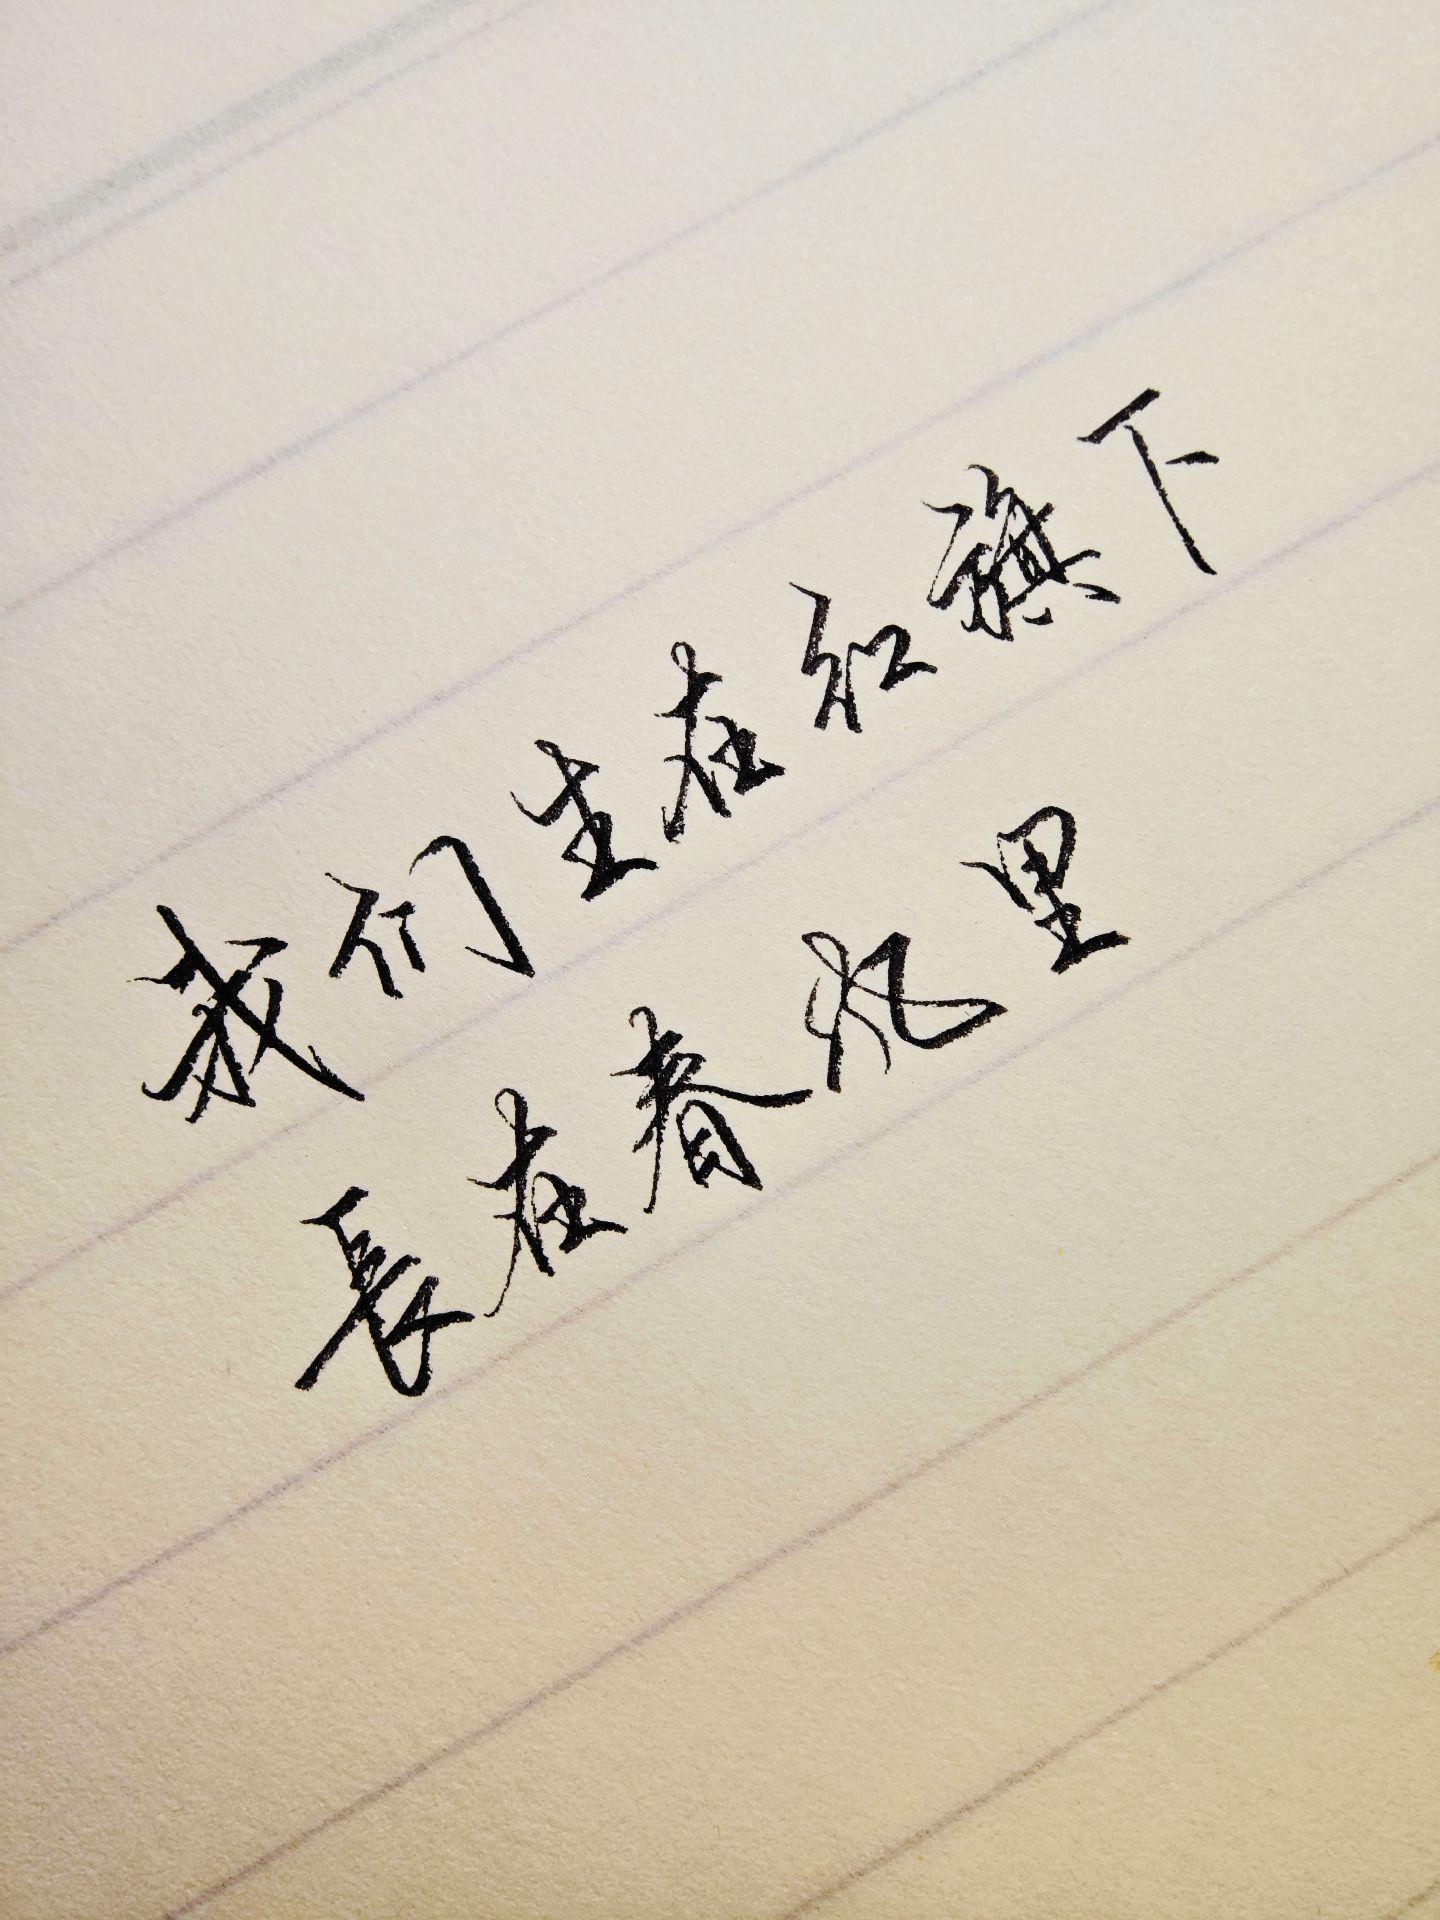 我们生在红旗下
長在春风里